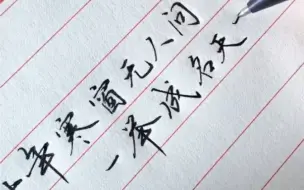 十年寒窗无人问
一举成名天